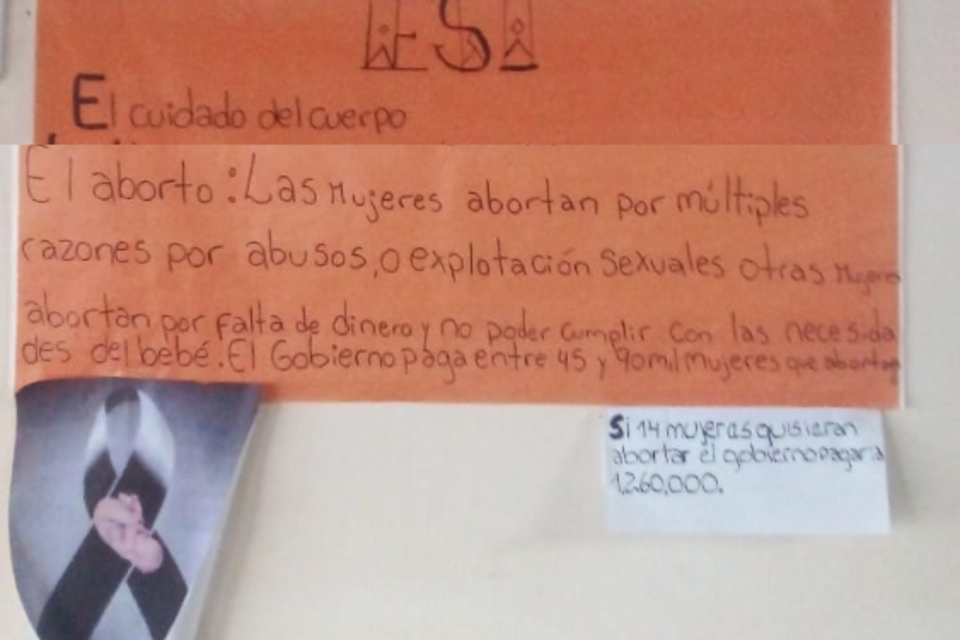 ESI
El cuidado del cuerpo
El aborto: Las Mujeres abortan por múltiples
razones por abusos, o explotación sexuales otras Mujeres
abortan por falta de dinero y no poder cumplir con las necesida
des del bebé. El Gobierno paga entre 45 y 90 mil mujeres que abortan
Si 14 mujeres quisieran
abortar el gobierno pagara
1,260,000.